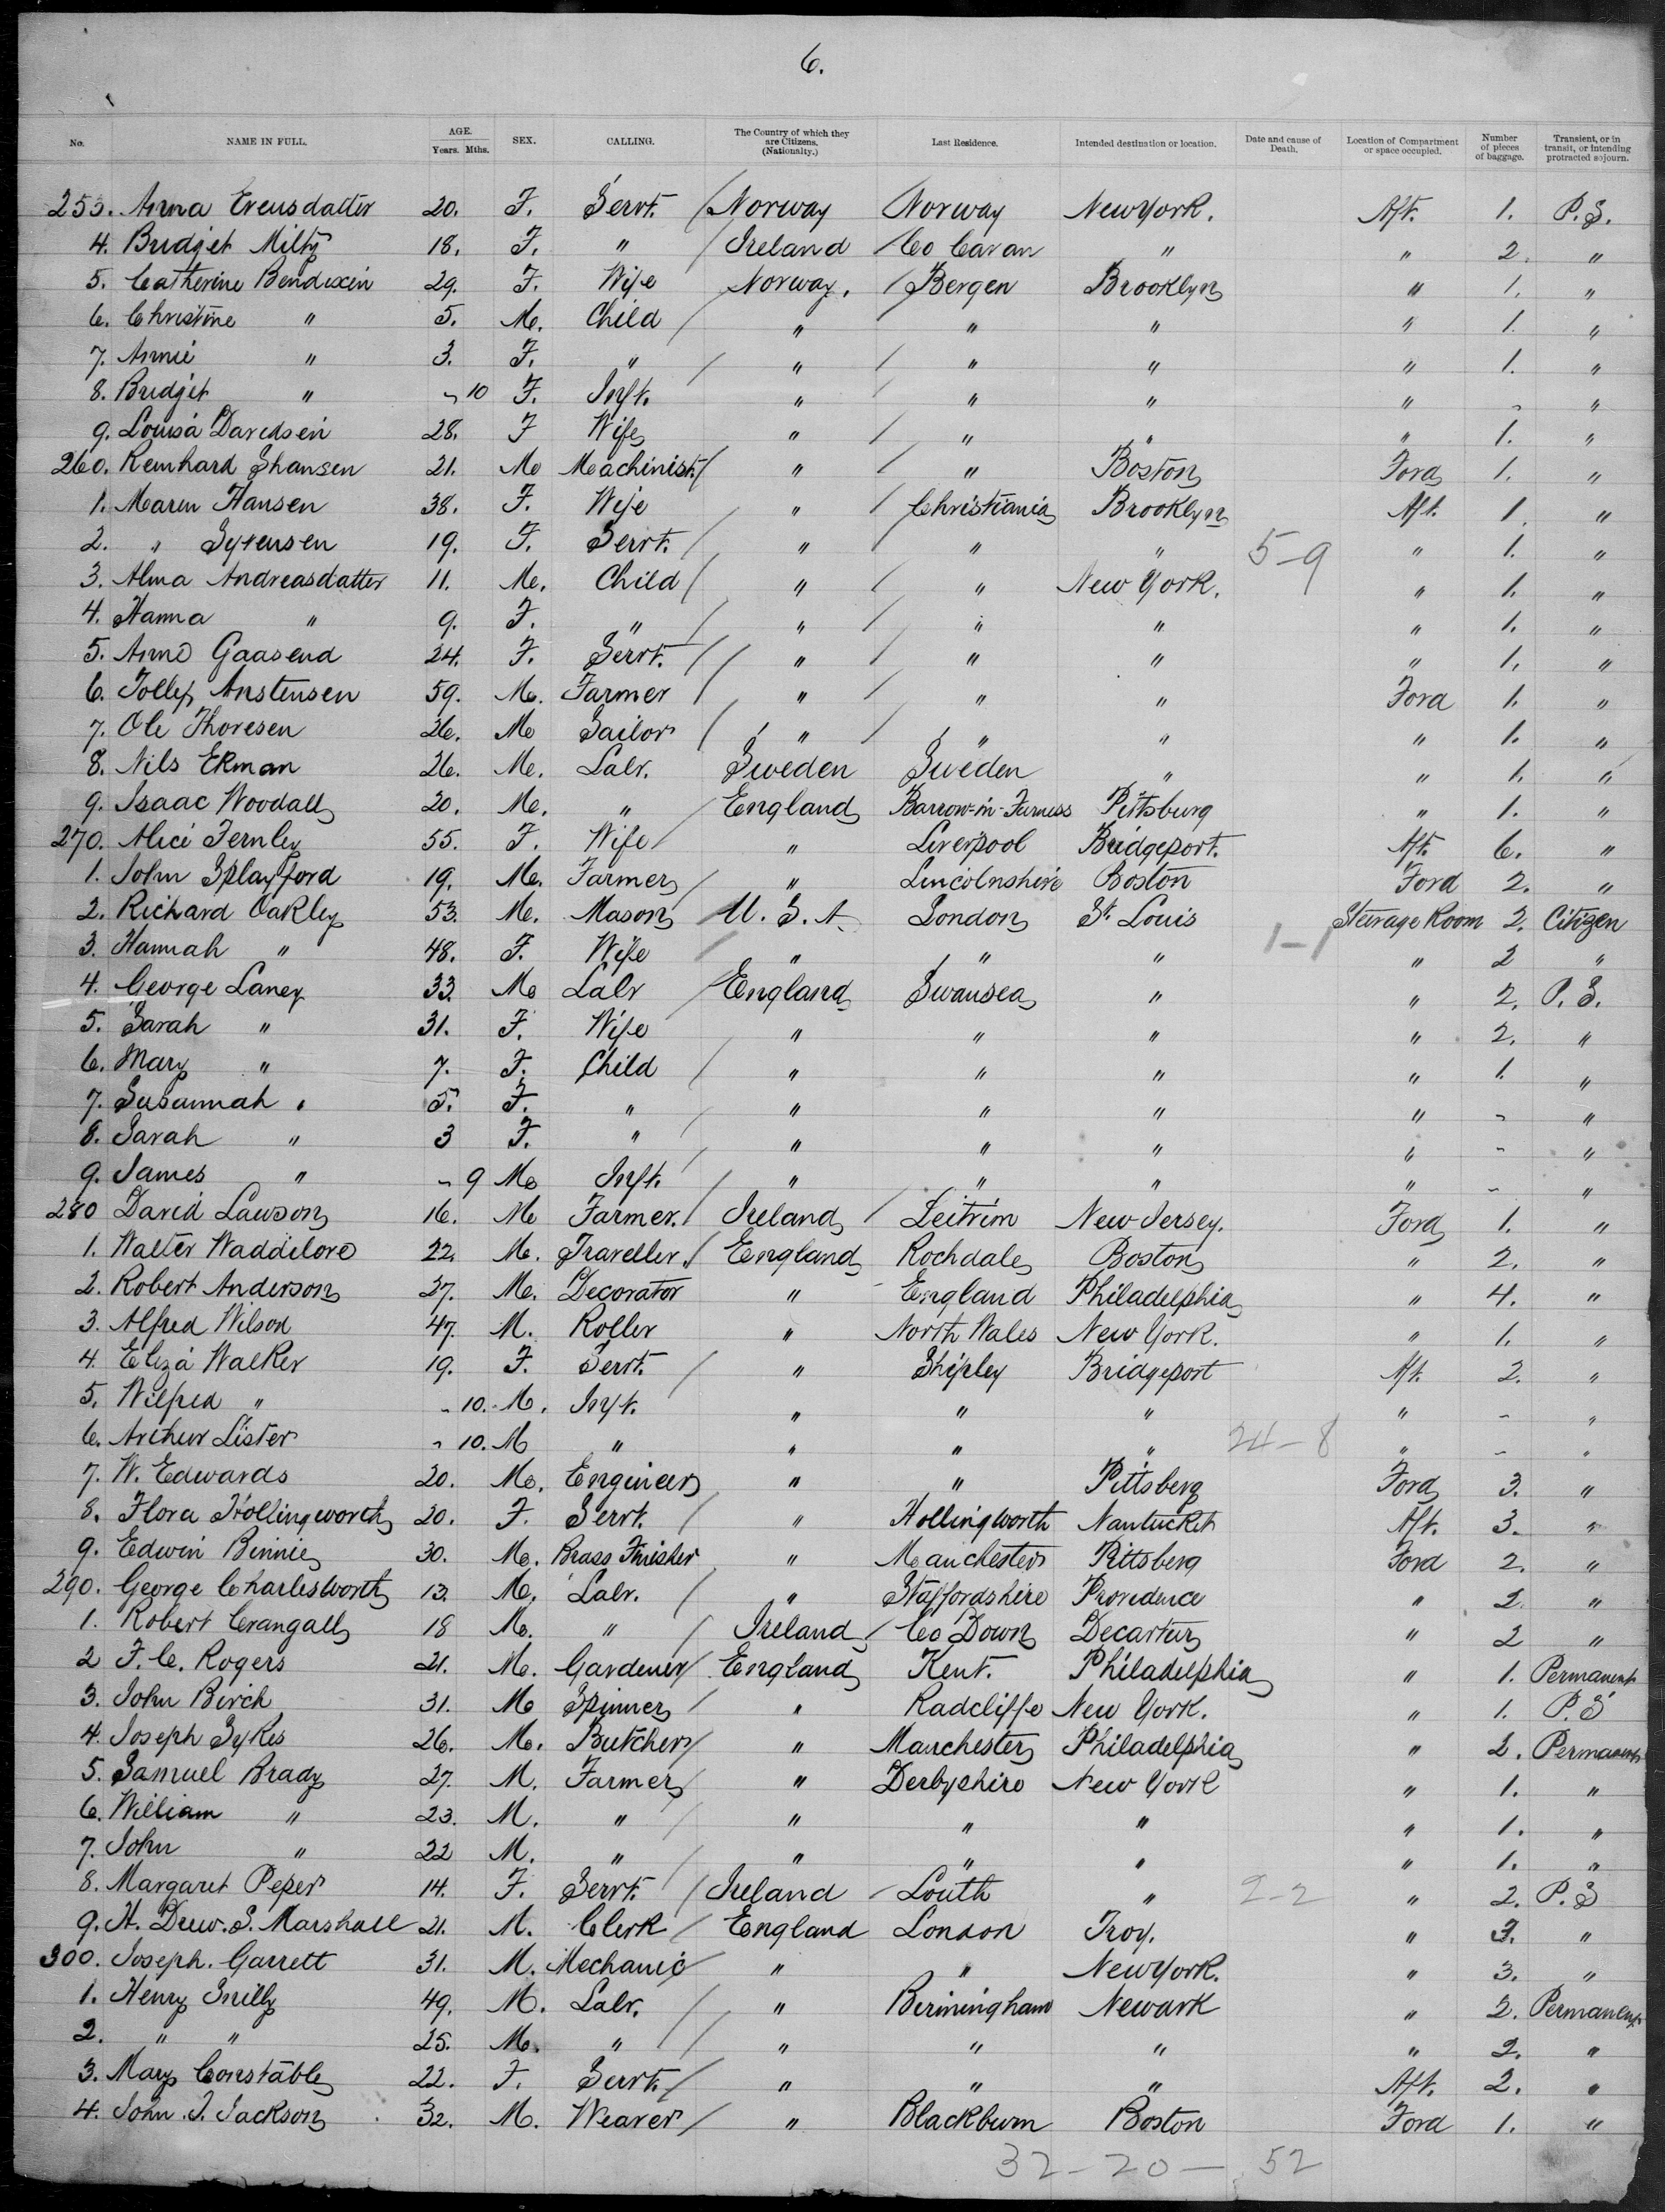 6.
No. NAME IN FULL. AGE. Years. Mths. SEX. CALLING. The Country of which they are Citizens. (Nationalty.) Last Residence. Intended destination or location. Date and cause of Death. Location of Compartment or space occupied. Number of pieces of baggage. Transient, or in transit, or intending protracted sojourn.
253. Anna Evensdatter 20. F. Servt. Norway Norway New York. Aft. 1. P.S.
4. Bridjet Milty 18. F. " Ireland Co Cavan " " 2. "
5. Catherine Bendixin 29. F. Wife Norway. Bergen Brooklyn " 1. "
6. Christine " 5. M. Child " " " " 1. "
7. Annie " 3. F. " " " " " 1. "
8. Bridjet " - 10 F. Inft. " " " " - "
9. Louisa Davidsen 28. F Wife " " " " 1. "
260. Reinhard Jhansen 21. M Machinist " " Boston Ford 1. "
1. Maren Hansen 38. F. Wife " Christiania Brooklyn Aft. 1. "
2. " Syvensen 19. F. Servt. " " " 5-9 " 1. "
3. Alma Andreasdatter 11. M. Child " " New York. " 1. "
4. Hanna " 9. F. " " " " " 1. "
5. Anne Gaasend 24. F. Servt. " " " " 1. "
6. Tollef Anstensen 59. M. Farmer " " " Ford 1. "
7. Ole Thoresen 26. M Sailor " " " " 1. "
8. Nils Ekman 26. M. Labr. Sweden Sweden " " 1. "
9. Isaac Woodall 20. M. " England Barrow-in-Furness Pittsburg " 1. "
270. Alice Fernley 55. F. Wife " Liverpool Bridgeport. Aft. 6. "
1. John Splayford 19. M. Farmer " Lincolnshire Boston Ford 2. "
2. Richard Oakley 53. M. Mason U.S.A. London St. Louis Steerage Room 2. Citizen
3. Hannah " 48. F. Wife " " " 1-1 " 2 "
4. George Laney 33. M Labr England Swansea " " 2. P.S.
5. Sarah " 31. F. Wife " " " " 2. "
6. Mary " 7. F. Child " " " " 1. "
7. Susannah " 5. F. " " " " " - "
8. Sarah " 3 F. " " " " " - "
9. James " - 9 M Inft. " " " " - "
280 David Lawson 16. M Farmer. Ireland Leitrim New Jersey. Ford 1. "
1. Walter Waddilove 22. M. Traveller. England Rochdale Boston " 2. "
2. Robert Anderson 27. M. Decorator " England Philadelphia " 4. "
3. Alfred Wilson 47. M. Roller " North Wales New York. " 1. "
4. Eliza Walker 19. F. Servt. " Shipley Bridgeport Aft. 2. "
5. Wilfred " - 10. M. Inft. " " " " - "
6. Arthur Lister - 10. M " " " " 24-8 " - "
7. W. Edwards 20. M. Engineer " " Pittsberg Ford 3. "
8. Flora Hollingworth 20. F. Servt. " Hollingworth Nantucket Aft. 3. "
9. Edwin Binnie 30. M. Brass Finisher " Manchester Pittsberg Ford 2. "
290. George Charlesworth 13. M. Labr. " Staffordshire Providence " 2. "
1. Robert Crangall 18 M. " Ireland Co Down Decartur " 2 "
2 F. C. Rogers 21. M. Gardener England Kent. Philadelphia " 1. Permanent
3. John Birch 31. M Spinner " Radcliffe New York. " 1. P.S
4. Joseph Sykes 26. M. Butcher " Manchester Philadelphia " 2. Permanent
5. Samuel Brady 27. M. Farmer " Derbyshire New York " 1. "
6. William " 23. M. " " " " " 1. "
7. John " 22 M. " " " " " 1. "
8. Margaret Peper 14. F. Servt. Ireland Louth " 2-2 " 2. P.S
9. H. Drew. S. Marshall 21. M. Clerk England London Troy. " 3. "
300. Joseph. Garrett 31. M. Mechanic " " New York. " 3. "
1. Henry 49. M. Labr. " Birmingham Newark " 2. Permanent
2. " " 25. M. " " " " " 2. "
3. Mary Constable 22. F. Servt. " " " Aft. 2. "
4. John. J. Jackson 32. M. Weaver " Blackburn Boston Ford 1. "
32-20-52